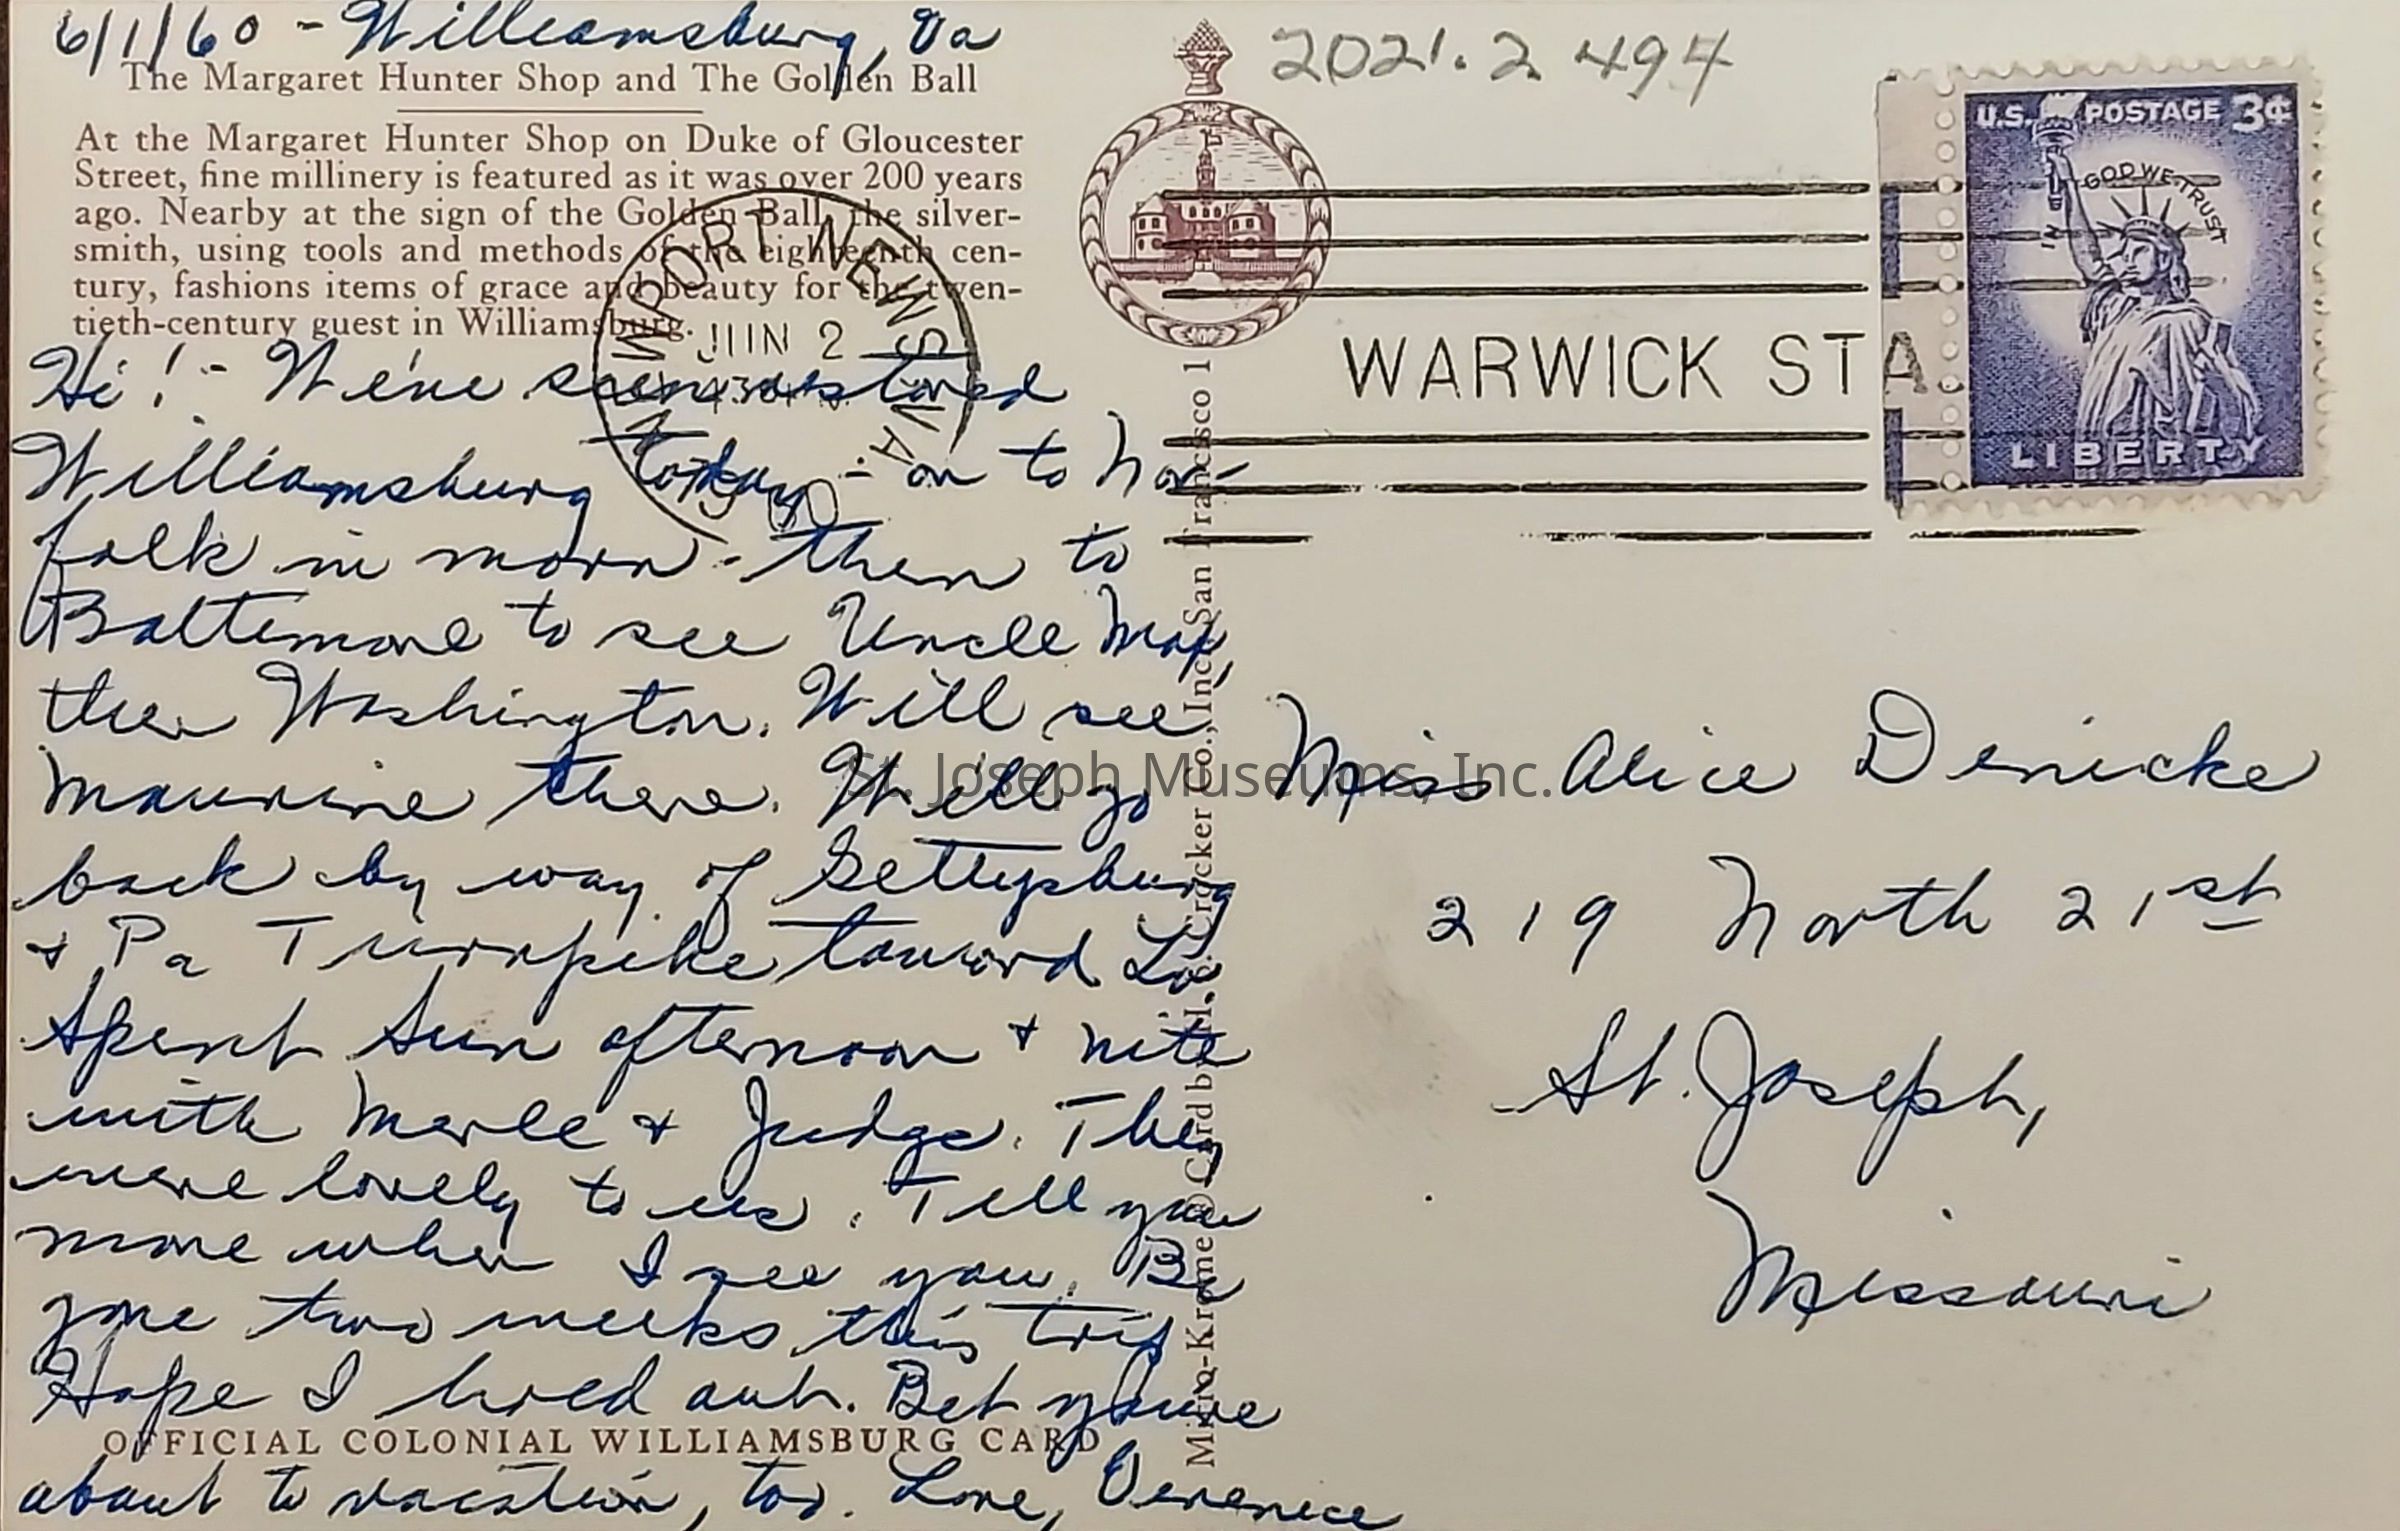 6/1/60 - Williamsburg, Va
The Margaret Hunter Shop and The Golden Ball
At the Margaret Hunter Shop on Duke of Gloucester
Street, fine millinery is featured as it was over 200 years
ago. Nearby at the sign of the Golden Ball, the silver-
smith, using tools and methods of the eighteenth cen-
tury, fashions items of grace and beauty for the twen-
tieth-century guest in Williamsburg.
Hi! - We've seen restored
Williamsburg today - on to Nor-
folk in morn - then to
Baltimore to see Uncle
then Washington. Will see
Maurine there. Will go
back by way of Gettysburg
+ Pa Turnpike toward
Spent Sun afternoon + nite
with Merle + Judge. They
were lovely to us. Tell you
more when I see you. Be
gone two weeks this trip
Hope I hold out. Bet you're
OFFICIAL COLONIAL WILLIAMSBURG CARD
about to vacation, too. Love, Verenice
NEWPORT NEWS, VA.
JUN 2
1960
Crocker Co., Inc., San Francisco 1
2021.2.494
WARWICK STA.
U.S. POSTAGE 3¢
IN GOD WE TRUST
LIBERTY
Miss Alice Denicke
219 North 21st
St. Joseph,
Missouri
St. Joseph Museums, Inc.